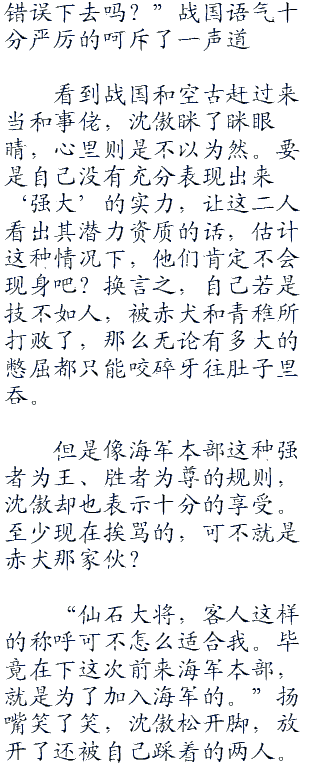 错误下去吗？”战国语气十
分严厉的呵斥了一声道
看到战国和空古赶过来
当和事佬，沈傲眯了眯眼
睛，心里则是不以为然。要
是自己没有充分表现出来
‘强大’的实力，让这二人
看出其潜力资质的话，估计
这种情况下，他们肯定不会
现身吧？换言之，自己若是
技不如人，被赤犬和青稚所
打败了，那么无论有多大的
憋屈都只能咬碎牙往肚子里
吞。
但是像海军本部这种强
者为王、胜者为尊的规则，
沈傲却也表示十分的享受。
至少现在挨骂的，可不就是
赤犬那家伙？
“仙石大将，客人这样
的称呼可不怎么适合我。毕
竟在下这次前来海军本部，
就是为了加入海军的。”扬
嘴笑了笑，沈傲松开脚，放
开了还被自己踩着的两人。